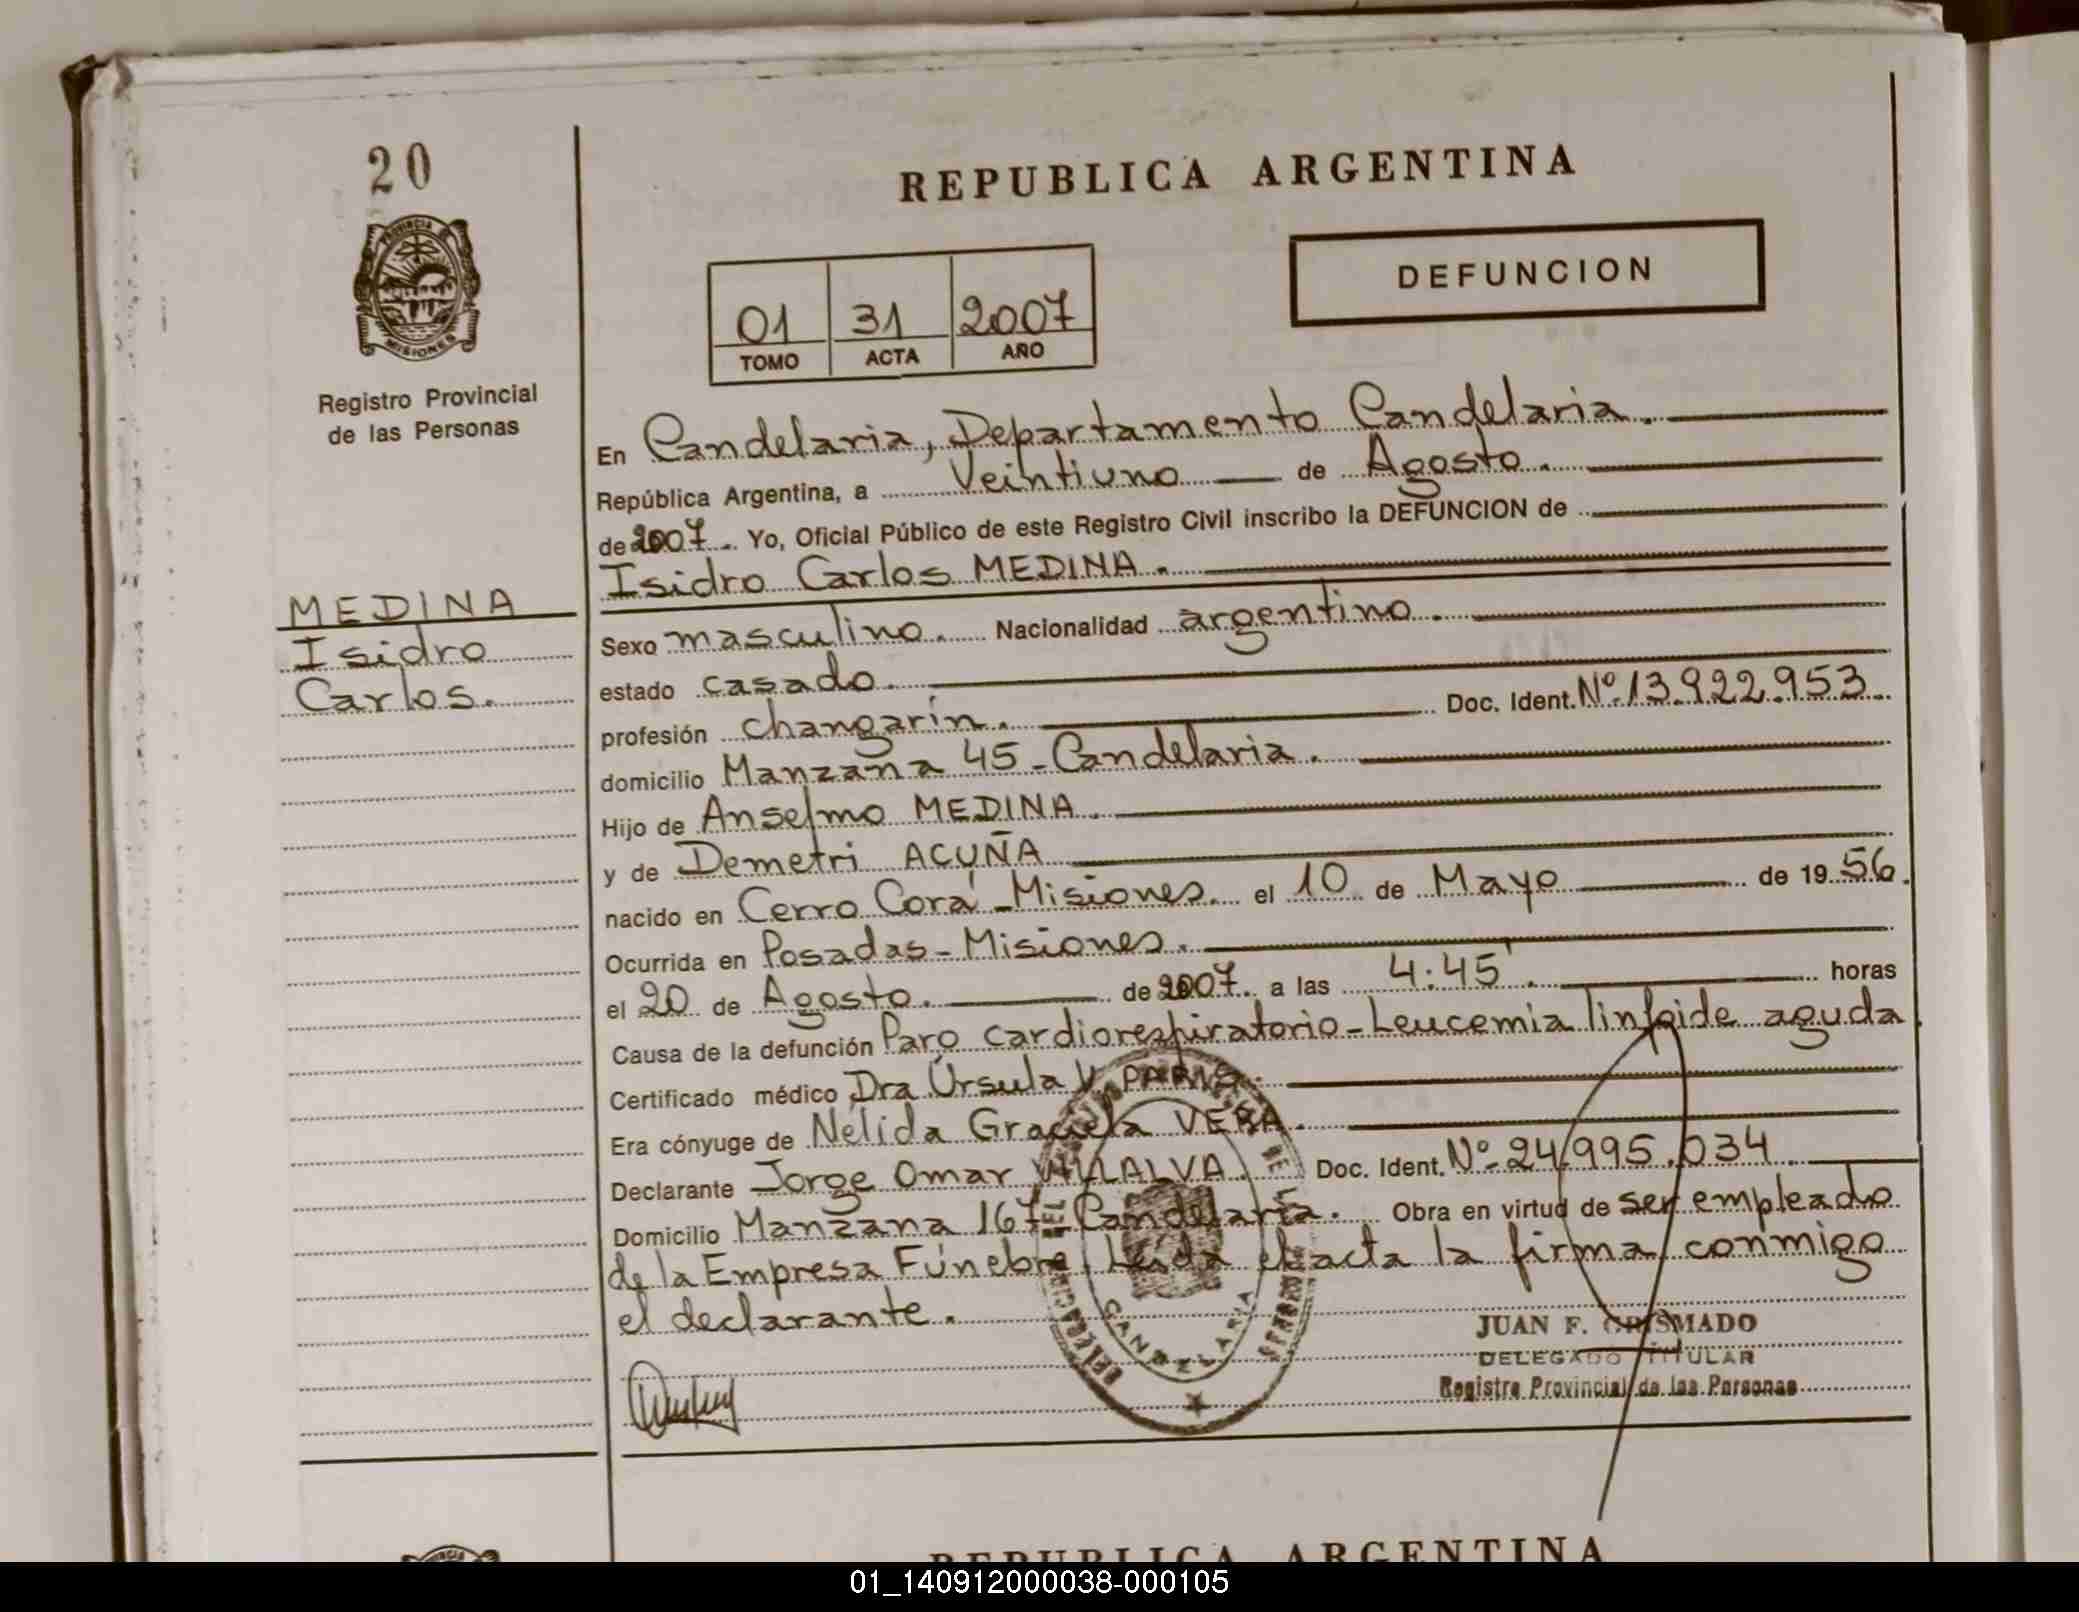 20
PROVINCIA DE
MISIONES
Registro Provincial
de las Personas
MEDINA
Isidro
Carlos.
REPUBLICA ARGENTINA
DEFUNCION
01 31 2007
TOMO ACTA AÑO
En Candelaria, Departamento Candelaria.
República Argentina, a Veintiuno de Agosto.
de 2007. Yo, Oficial Público de este Registro Civil inscribo la DEFUNCION de
Isidro Carlos MEDINA.
Sexo masculino. Nacionalidad argentino.
estado casado.
profesión changarín. Doc. Ident. Nº 13.922.953
domicilio Manzana 45 - Candelaria.
Hijo de Anselmo MEDINA.
y de Demetri ACUÑA
nacido en Cerro Corá - Misiones. el 10 de Mayo de 1956.
Ocurrida en Posadas - Misiones.
el 20 de Agosto. de 2007. a las 4:45'. horas
Causa de la defunción Paro cardiorespiratorio - Leucemia linfoide aguda.
Certificado médico Dra Úrsula V.
Era cónyuge de Nélida Graciela VERA.
Declarante Jorge Omar VILLALVA. Doc. Ident. Nº 24.995.034
Domicilio Manzana 167 - Candelaria. Obra en virtud de ser empleado
de la Empresa Fúnebre. Leída el acta la firma conmigo
el declarante.
CANDELARIA
JUAN F. GRISMADO
DELEGADO TITULAR
Registro Provincial de las Personas
REPUBLICA ARGENTINA
01_140912000038-000105